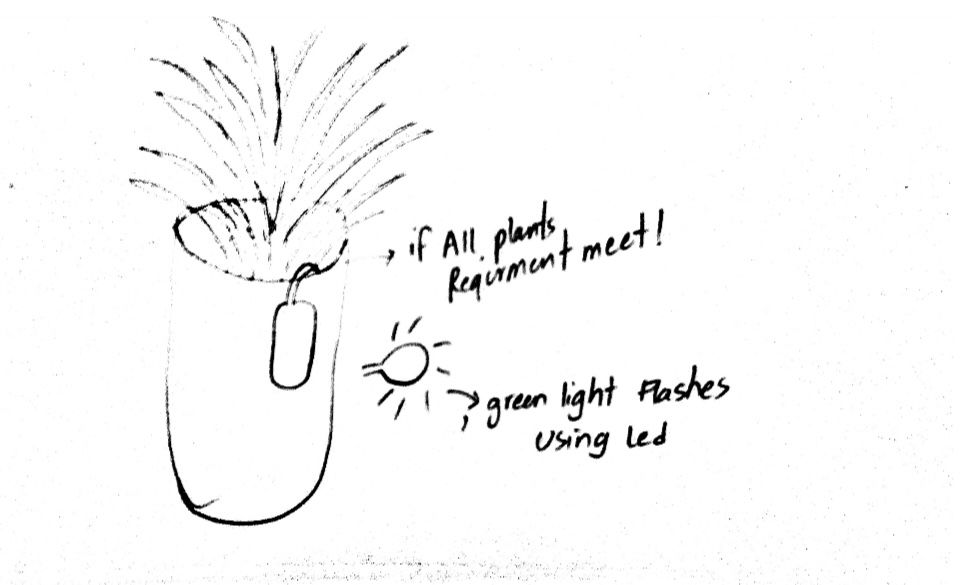 if All plants
Requrment meet!
green light Flashes
Using Led